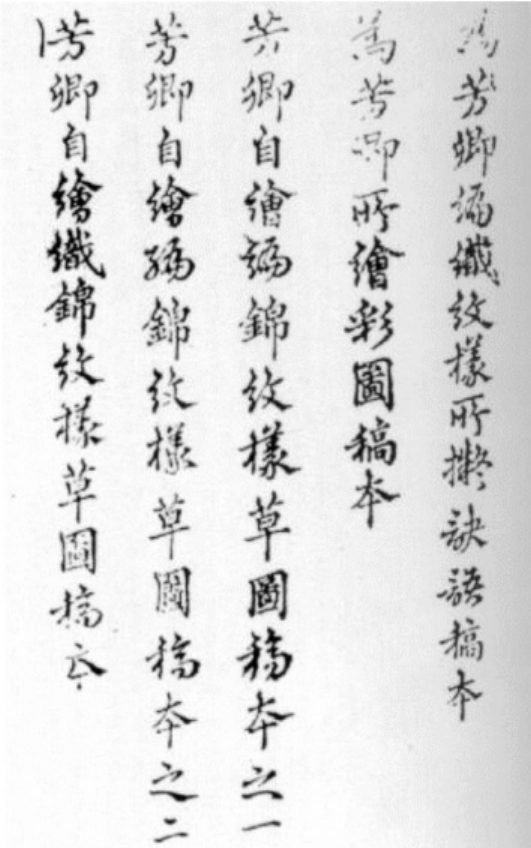 為芳卿編織紋樣所擬訣語稿本
為芳卿所繪彩圖稿本
芳卿自繪編錦紋樣草圖稿本之一
芳卿自繪編錦紋樣草圖稿本之二
芳卿自繪織錦紋樣草圖稿本